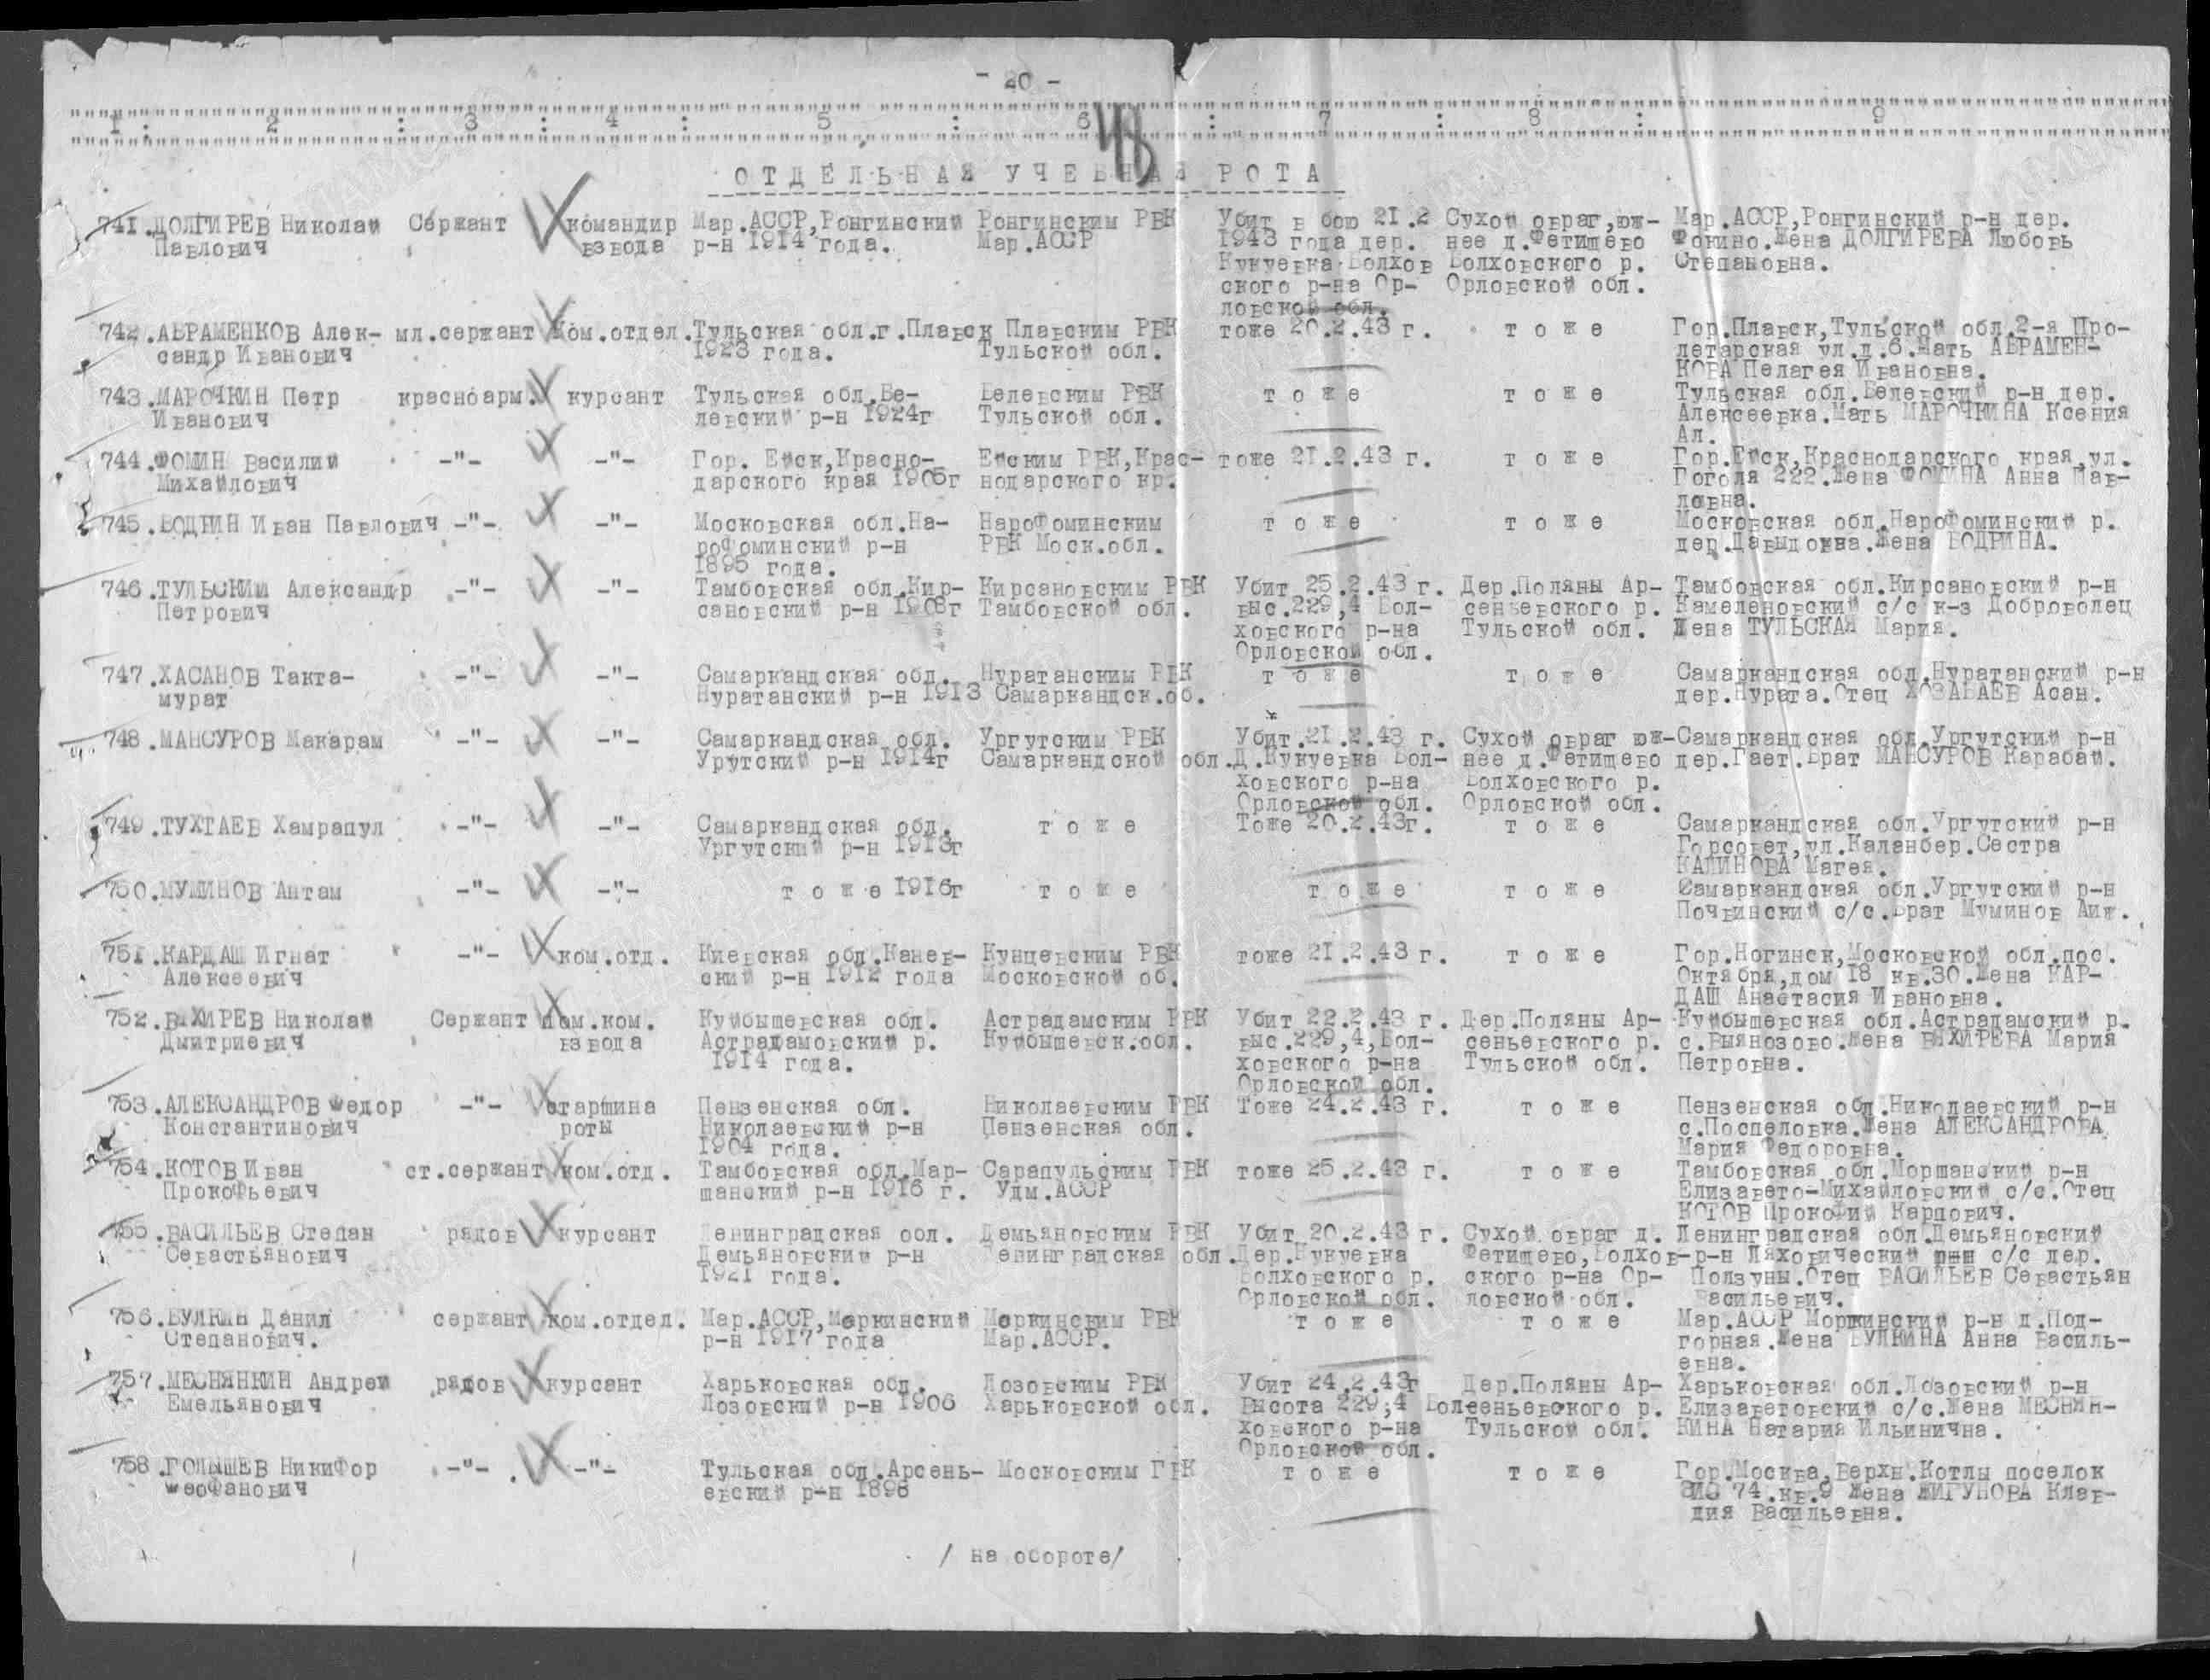 - 20 -
1 : 2 : 3 : 4 : 5 : 6 : 7 : 8 : 9
48
ОТДЕЛЬНАЯ УЧЕБНАЯ РОТА
741.ДОЛГИРЕВ Николай Сержант командир Мар.АССР,Ронгинский Ронгинским РВК Убит в бою 21.2 Сухой овраг,юж- Мар.АССР,Ронгинский р-н дер.
Павлович взвода р-н 1914 года. Мар.АССР 1943 года дер. нее д.Фетищево Фокино.Жена ДОЛГИРЕВА Любовь
Кукуевка Болхов Болховского р. Степановна.
ского р-на Ор- Орловской обл.
ловской обл.
742.АВРАМЕНКОВ Алек- мл.сержант Ком.отдел.Тульская обл.г.Плавск Плавским РВК тоже 20.2.43 г. тоже Гор.Плавск,Тульской обл.2-я Про-
сандр Иванович 1923 года. Тульской обл. летарская ул.д.6.Мать АВРАМЕН-
КОВА Пелагея Ивановна.
743.МАРОЧКИН Петр красноарм. курсант Тульская обл.Бе- Белевским РВК тоже тоже Тульская обл.Белевский р-н дер.
Иванович левский р-н 1924г Тульской обл. Алексеевка.Мать МАРОЧКИНА Ксения
Ал.
744.ФОМИН Василий -"- -"- Гор. Ейск,Красно- Ейским РВК,Крас- тоже 21.2.43 г. тоже Гор.Ейск,Краснодарского края,ул.
Михайлович дарского края 1905г нодарского кр. Гоголя 222.Жена ФОМИНА Анна Пав-
ловна.
745.БОДРИН Иван Павлович -"- -"- Московская обл.На- НароФоминским тоже тоже Московская обл.НароФоминский р.
роФоминский р-н РВК Моск.обл. дер.Давыдовна.Жена БОДРИНА.
1895 года.
746.ТУЛЬСКИЙ Александр -"- -"- Тамбовская обл.Кир- Кирсановским РВК Убит 25.2.43 г. Дер.Поляны Ар- Тамбовская обл.Кирсановский р-н
Петрович сановский р-н 1908г Тамбовской обл. выс.229,4 Бол- сеньевского р. Камеленовский с/с к-з Доброволец
ховского р-на Тульской обл. Жена ТУЛЬСКАЯ Мария.
Орловской обл.
747.ХАСАНОВ Такта- -"- -"- Самаркандская обл. Нуратанским РВК тоже тоже Самаркандская обл.Нуратанский р-н
мурат Нуратанский р-н 1913 Самаркандск.об. дер.Нурата.Отец ХОЗАБАЕВ Асан.
748.МАНСУРОВ Макарам -"- -"- Самаркандская обл. Ургутским РВК Убит.21.2.43 г. Сухой овраг юж-Самаркандская обл.Ургутский р-н
Урутский р-н 1914г Самаркандской обл.Д.Кукуевка Бол- нее д.Фетищево дер.Гает.Брат МАНСУРОВ Карабай.
ховского р-на Болховского р.
Орловской обл. Орловской обл.
749.ТУХТАЕВ Хамрапул -"- -"- Самаркандская обл. тоже Тоже 20.2.43г. тоже Самаркандская обл.Ургутский р-н
Ургутский р-н 1913г Горсовет,ул.Каланбер.Сестра
КАЛИНОВА Магея.
750.МУМИНОВ Антам -"- -"- тоже 1916г тоже тоже тоже Самаркандская обл.Ургутский р-н
Почвинский с/с.Брат Муминов Аиж.
751.КАРДАШ Игнат -"- ком.отд. Киевская обл.Канев- Кунцевским РВК тоже 21.2.43 г. тоже Гор.Ногинск,Московской обл.пос.
Алексеевич ский р-н 1912 года Московской об. Октября,дом 18 кв.30.Жена КАР-
ДАШ Анастасия Ивановна.
752.ВЯХИРЕВ Николай Сержант пом.ком. Куйбышевская обл. Астрадамским РВК Убит 22.2.43 г. Дер.Поляны Ар- Куйбышевская обл.Астрадамский р.
Дмитриевич взвода Астрадамовский р. Куйбышевск.обл. выс.229,4,Бол- сеньевского р. с.Выянозово.Жена ВЯХИРЕВА Мария
1914 года. ховского р-на Тульской обл. Петровна.
Орловской обл.
753.АЛЕКСАНДРОВ Федор -"- старшина Пензенская обл. Николаевским РВК Тоже 24.2.43 г. тоже Пензенская обл.Николаевский р-н
Константинович роты Николаевский р-н Пензенская обл. с.Поспеловка.Жена АЛЕКСАНДРОВА
1904 года. Мария Федоровна.
754.КОТОВ Иван ст.сержант ком.отд. Тамбовская обл.Мар- Сарапульским РВК тоже 25.2.43 г. тоже Тамбовская обл.Моршанский р-н
ПрокоФьевич шанский р-н 1916 г. Удм.АССР Елизавето-Михайловский с/с.Отец
КОТОВ ПрокоФий Карпович.
755.ВАСИЛЬЕВ Степан рядов курсант Ленинградская обл. Демьяновским РВК Убит 20.2.43 г. Сухой овраг д. Ленинградская обл.Демьяновский
Севастьянович Демьяновский р-н Ленинградская обл.Дер.Кукуевка Фетищево,Болхов-р-н Ляховический с/с дер.
1921 года. Болховского р. ского р-на Ор- Ползуны.Отец ВАСИЛЬЕВ Севастьян
Орловской обл. ловской обл. Васильевич.
756.БУЛКИН Данил сержант ком.отдел. Мар.АССР,Моркинский Моркинским РВК тоже тоже Мар.АССР Моркинский р-н д.Под-
Степанович. р-н 1917 года Мар.АССР. горная.Жена БУЛКИНА Анна Василь-
евна.
757.МЕСНЯНКИН Андрей рядов курсант Харьковская обл. Лозовским РВК Убит 24.2.43г Дер.Поляны Ар- Харьковская обл.Лозовский р-н
Емельянович Лозовский р-н 1906 Харьковской обл. Высота 229,4 Болсеньевского р. Елизаветовский с/с.Жена МЕСНЯН-
ховского р-на Тульской обл. КИНА Натария Ильинична.
Орловской обл.
758.ГОЛЫШЕВ НикиФор -"- -"- Тульская обл.Арсень- Московским ГВК тоже тоже Гор.Москва,Верхн.Котлы поселок
ФеоФанович евский р-н 1898 ЗИС 74.кв.9 Жена ЖИГУНОВА Клав-
дия Васильевна.
/ на обороте/